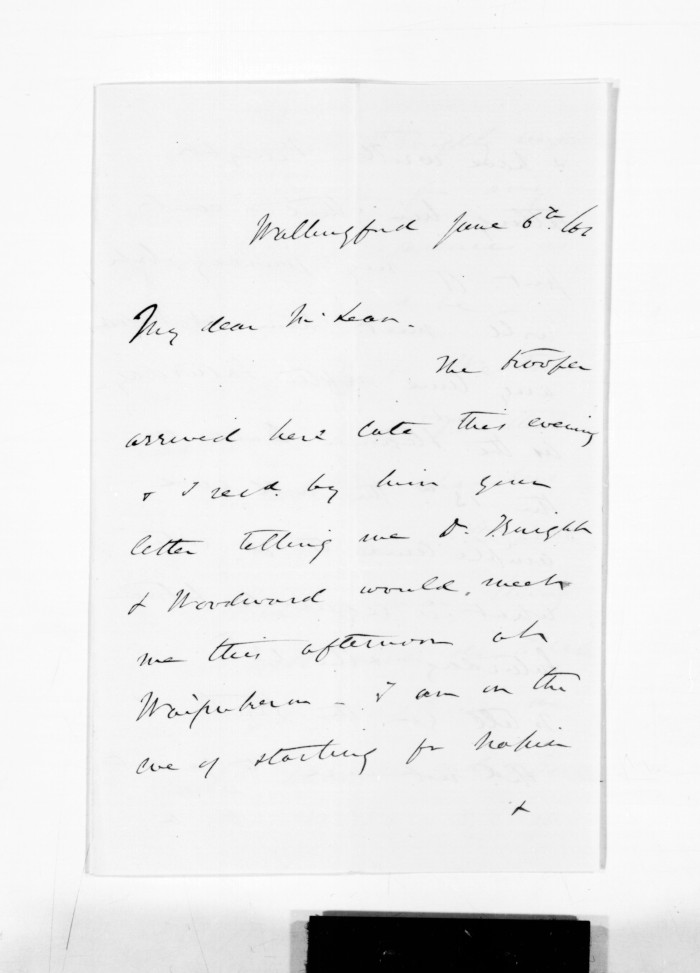 Wallingford June 6th /62
My dear McLean.
The trooper
arrived here late this evening
& I recd. by him your
letter telling me Dr. Knight
& Woodward would, meet
me this afternoon at
Waipukurau - I am on the
eve of starting for Napier
&